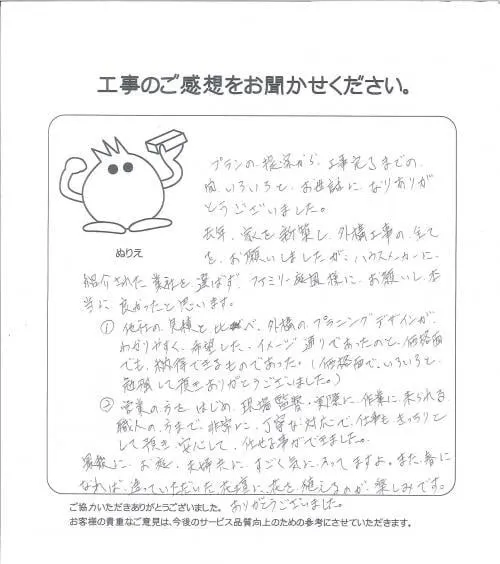 工事のご感想をお聞かせください。
プランの提案から、工事完了までの
間、いろいろと、お世話に、なりありが
とうございました。
去年、家を新築し、外構工事の全て
を、お願いしましたが、ハウスメーカーに、
ぬりえ
紹介された業社を選ばず、ファミリー庭園様に、お願いし、本
当に良かったと思います。
① 他社の見積と比べ、外構のプランニングデザインが、
わかりやすく、希望した、イメージ通りであったのと、価格面
でも、納得できるものであった。(価格面で、いろいろと、
勉強して頂きありがとうございました。)
② 営業の方をはじめ、現場監督・実際に作業に来られる
職人の方まで、非常に、丁寧な対応で、仕事も、きっちりと
して頂き、安心して、任せる事ができました。
最後に、お庭、夫婦共に、すごく気に入ってますよ。また、春に
なれば、造っていただいた花壇に、花を植えるのが、楽しみです。
ありがとうございました。
ご協力いただきありがとうございました。
お客様の貴重なご意見は、今後のサービス品質向上のための参考にさせていただきます。